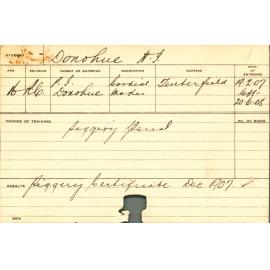 STUDENT Donohue A.J.
AGE RELIGION PARENT OR GUARDIAN OCCUPATION ADDRESS DATE OF ENTRANCE
16 R.C. P.J. Donohue Cordial Maker Tenterfield 19.2.07
Left 20.6.08
COURSE OF TRAINING NO. OF WEEKS
Piggery
RESULTS Piggery Certificate Dec 1907